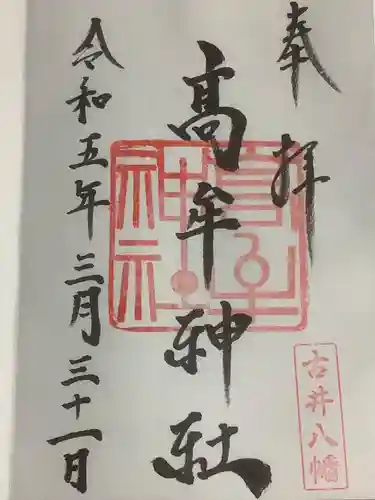 奉拝
高牟神社
古井八幡
令和五年三月三十一日
高牟神社